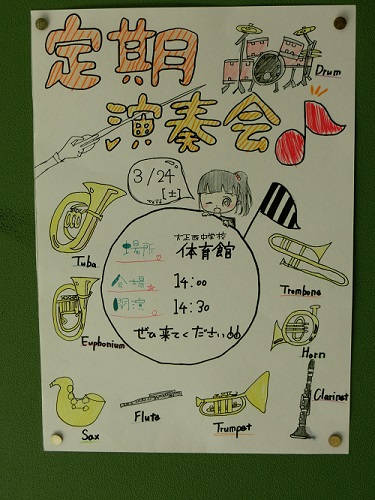 定期
演奏会
Drum
3/24
[土]
大正西中学校
場所 体育館
会場 14:00
開演 14:30
ぜひ来てください
Tuba
Trombone
Euphonium
Horn
Clarinet
Sax
Flute
Trumpet